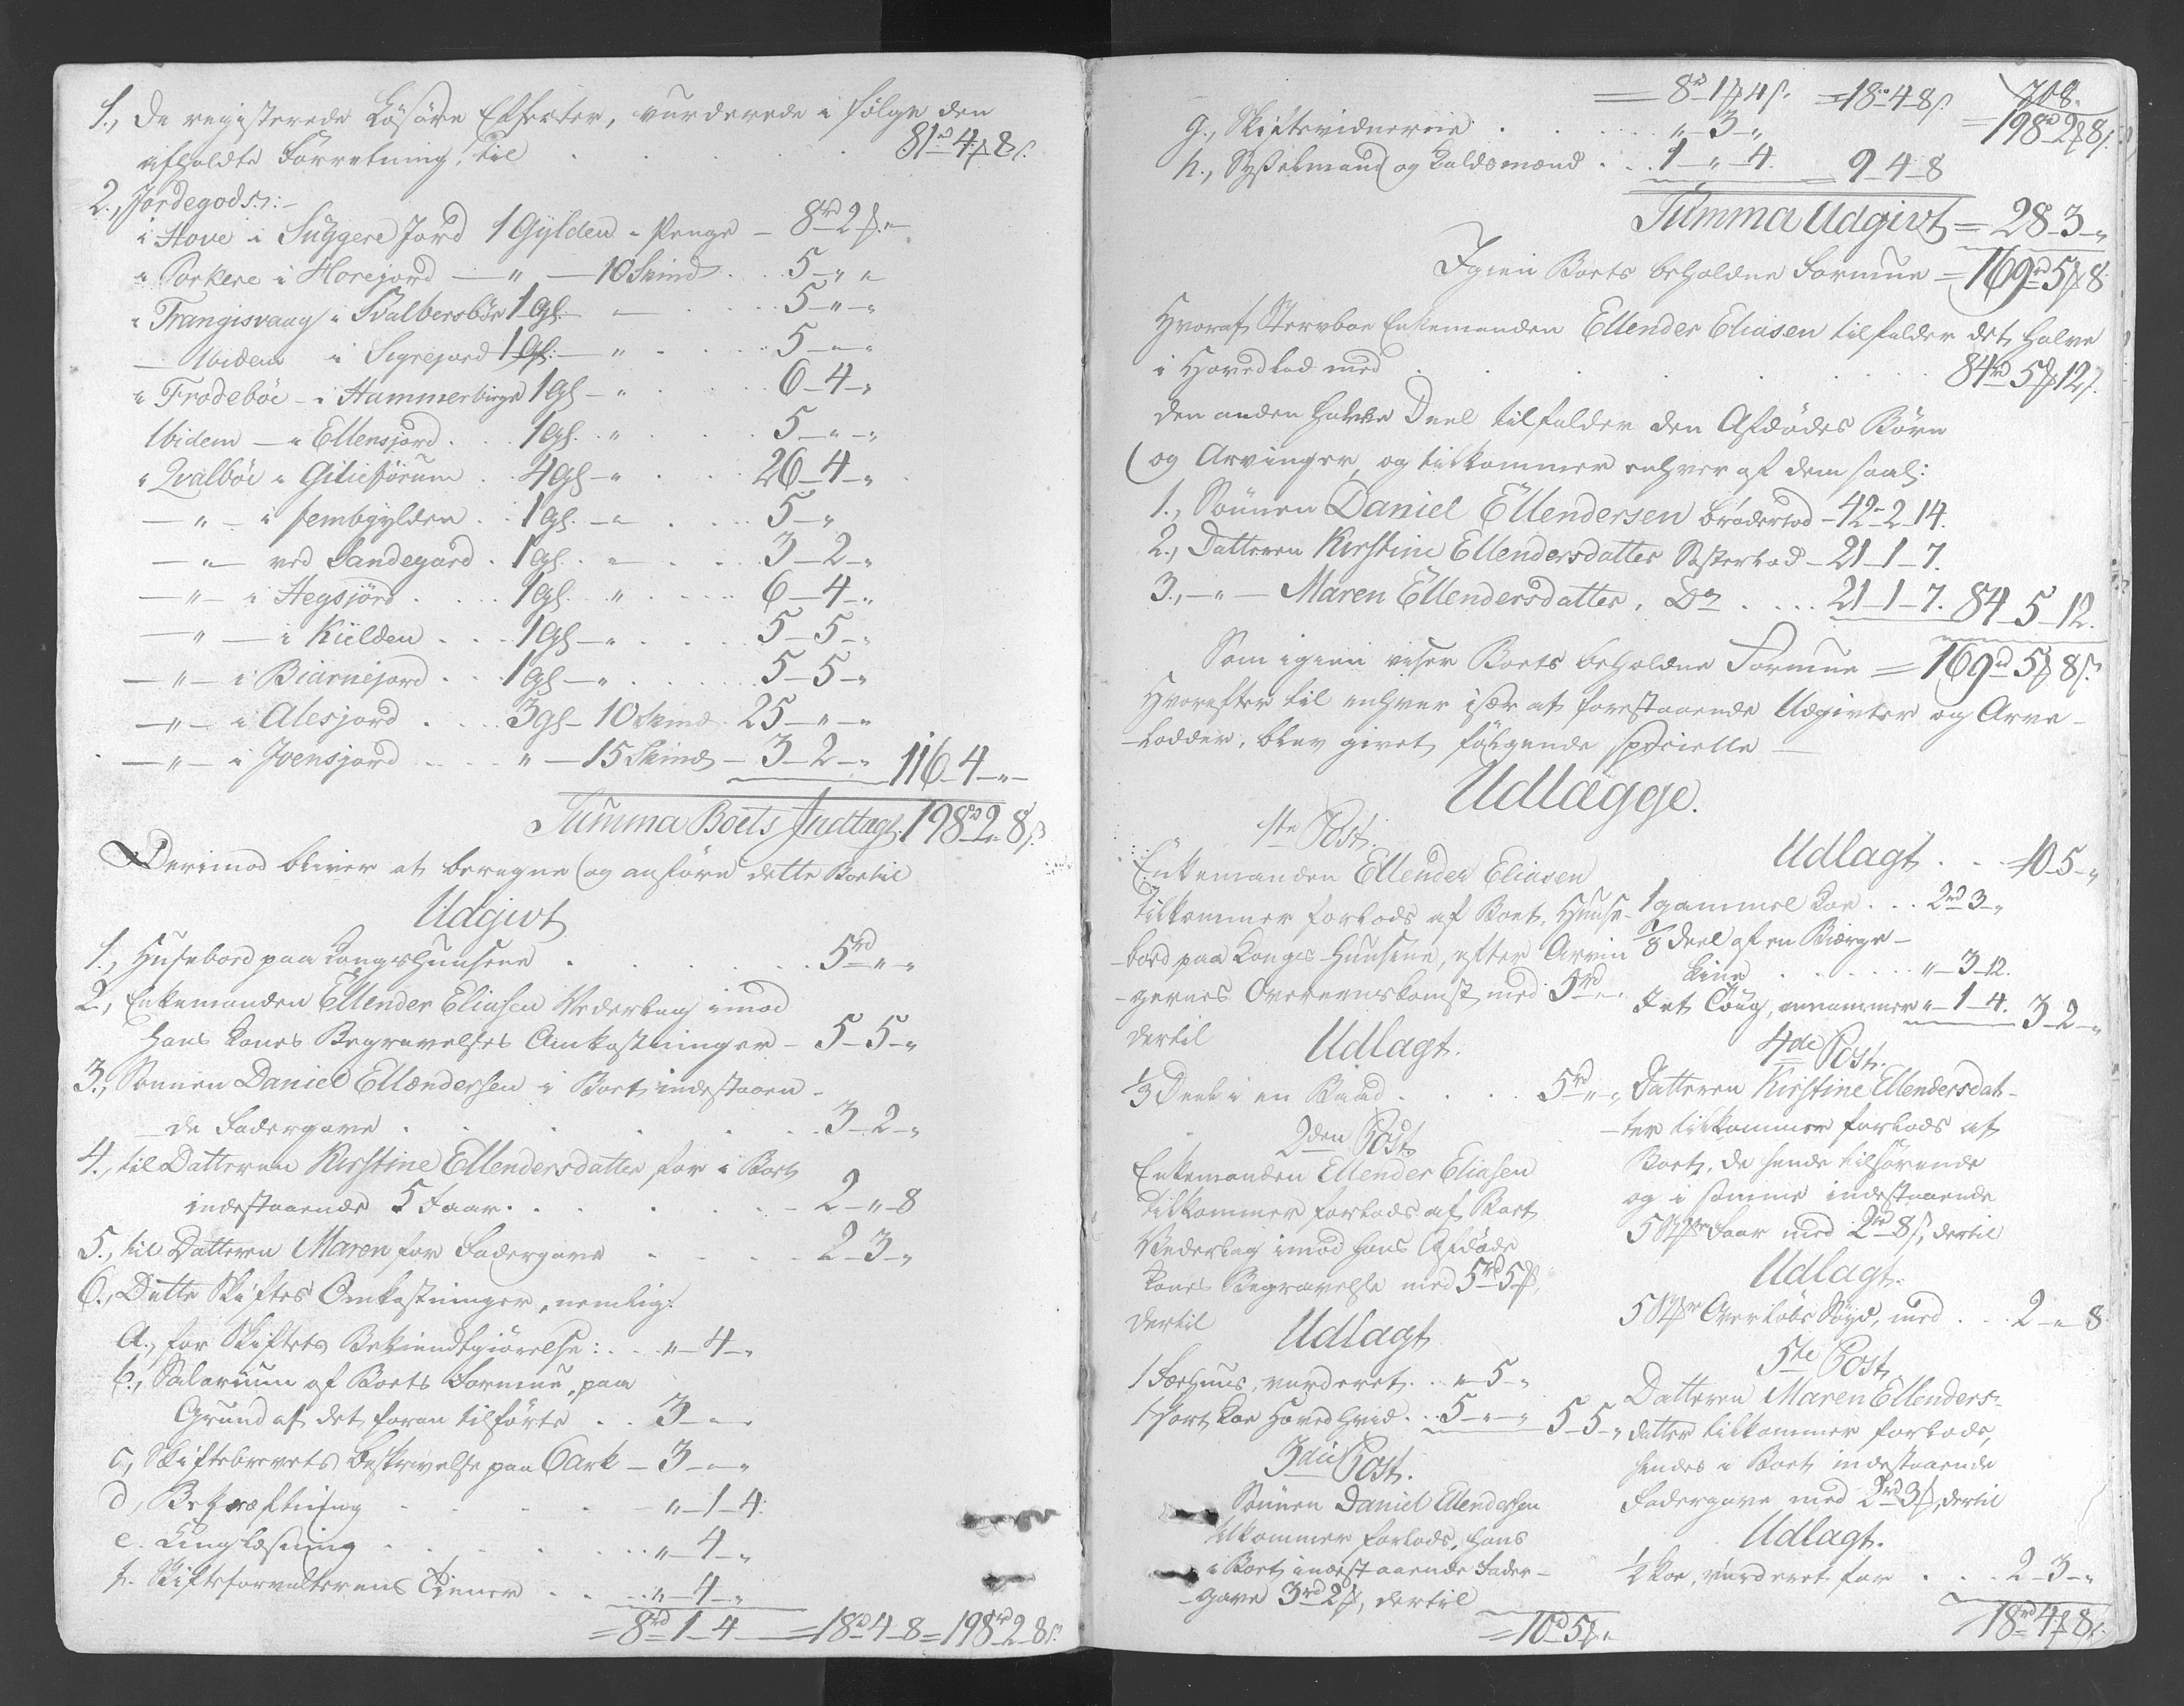 1., De registerede Løsøre Effecter, vurderede i følge den
afholdte Forretning, til . . . . 81rd 4 ß 8 s.
2., Jordegods:
i Hove i Suggere Jord 1 Gylden - Penge - 8rd 2 ß „
i Porkere i Horejord — „ — 10 Skind . . 5 - „ „
i Trangisvaag i Tvalbersbøe 1 gl. — . . . 5 - „ - „
— Ibidem i Sigrejord 1 gl: — „ . . . 5 - „ - „
i Frodebøe - i Hammerbirge 1 gl - „ . . . 6 - 4 - „
Ibidem — i Ellensjord . . 1 gl. . „ . . . 5 - „ - „
i Qvalbøe i Giliestørum . . 4 gl - „ . . . 26 - 4 - „
— „ — i fembgylden . . 1 gl. - „ . . . 5 - „
— „ — ved Sandegærd . 1 gl. . „ . . . 3 - 2 - „
— „ — i Hegsjørd . . . 1 gl. „ . . . 6 - 4 - „
— „ — i Kielden . . . 1 gl - „ . . . 5 - 5 - „
— „ — i Biarnejord . . . 1 gl - „ . . . 5 - 5 - „
— „ — i Alesjord . . . 3 gl - 10 Skind . 25 - „ - „
— „ — i Joensjord . . . „ - 15 Skind - 3 - 2 - „ 116 - 4 - „ -
Summa Boets Indtægt. 198rd 2 „ 8 s.
Derimod bliver at beregne og anføre dette Boe til
Udgivt
1., Husebord paa Kongshuusene . . . . 5rd „ - „
2., Enkemanden Ellender Eliasen Vederlag imod
hans Kones Begravelses Omkostninger - 5 - 5 - „
3., Sønnen Daniel Ellændersen i Boet indestaaen-
-de Fadergave . . . . 3 - 2 - „
4., til Datteren Kirstine Ellendersdatter for i Boet
indestaaende 5 Faar . . . . 2 - „ - 8
5., til Datteren Maren for Fadergave . . . . 2 - 3 - „
6., Dette Skiftes Omkostninger, nemlig:
a., for Skiftets Bekiendtgiørelse: . . „ - 4 - „
b., Salarium af Boets Formue, paa
Grund af det foran tilførte . . 3 - „ -
c., Skiftebrevets Beskrivelse paa 6 Ark - 3 - „ - „
d., Bekræftning . . . . - „ - 1 - 4:
e. Tinglæsning . . . . „ - 4 - „
f. Skifteforvalterens Tiener . . . „ - 4 - „
= 8rd 1 - 4 — = 18rd 4 - 8 = 198rd 2 - 8 s.
708.
= 8rd 1 ß 4 s. = 18rd 4 - 8 s. = 198rd 2 ß 8 s.
g., Skiftevidnerne . . . . „ - 3 - „
h., Sysselmand og Kaldsmænd . . 1 - „ - 4. 9 - 4 - 8
Summa Udgivt = 28 - 3 - „
Igien Boets beholdne Formue = 169rd 5 ß 8
Hvoraf Stervboe Enkemanden Ellender Eliasen tilfalder det halve
i Hovedlod med . . . . 84rd 5 ß 12 s.
den anden halve Deel tilfalder den Afdødes Børn
og Arvinger, og tilkommer enhver af dem saal:
1., Sønnen Daniel Ellendersen broderlod - 42 - 2 - 14.
2., Datteren Kirstine Ellendersdatter Søsterlod - 21 - 1 - 7.
3., - „ - Maren Ellendersdatter, Do . . . 21 - 1 - 7. 84 - 5 - 12.
Som igien viser Boets beholdne Formue = 169rd 5 ß 8 s.
Hvorefter til enhver især at forestaaende Udgivter og Arve-
-Lodder, blev givet følgende specielle —
Udlægge.
1ste Post.
Enkemanden Ellender Eliasen
tilkommer forlods af Boet, Huuse-
-bord paa Konges Huusene, efter Arvin-
-gernes Overeenskomst med 5rd „ - „
dertil Udlagt.
1/3 Deel i en Baad . . . . 5rd „ - „
2den Post
Enkemanden Ellender Eliasen
tilkommer forlods af Boet
Vederlag imod hans Afdøde
Kones Begravelse med 5rd 5 ß,
dertil Udlagt
1 Foehuus, vurderet . . „ - 5 - „
1 sort Koe Hoved hvid . . 5 - „ - „ 5 - 5 - „
3die Post.
Sønnen Daniel Ellendersen
tilkommer forlods, hans
i Boet indestaaende Fader-
-gave 3rd 2 ß, dertil
= 10rd 5 ß „
Udlagt . . . 10 - 5 - „
1 gammel Koe . . . 2rd 3 - „
1/8 Deel af en Biærge-
Line . . . . „ - 3 - 12.
I et Toug, annammer „ - 1 - 4. 3 - 2 - „
4de Post.
Datteren Kirstine Ellendersdat-
-ter tilkommer forlods af
Boet, de hende tilhørende
og i samme indestaaende
5 Stkr Faar med 2rd 8 s, dertil
Udlagt:
5 Stkr Overløbs Søyd, med . . . 2 - „ - 8
5te Post
Datteren Maren Ellenders-
datter tilkommer forlods,
hendes i Boet indestaaende
Fadergave med 2rd 3 ß, dertil
Udlagt.
1/2 Koe, vurderet for . . . 2 - 3 - „
18rd 4 ß 8 s.